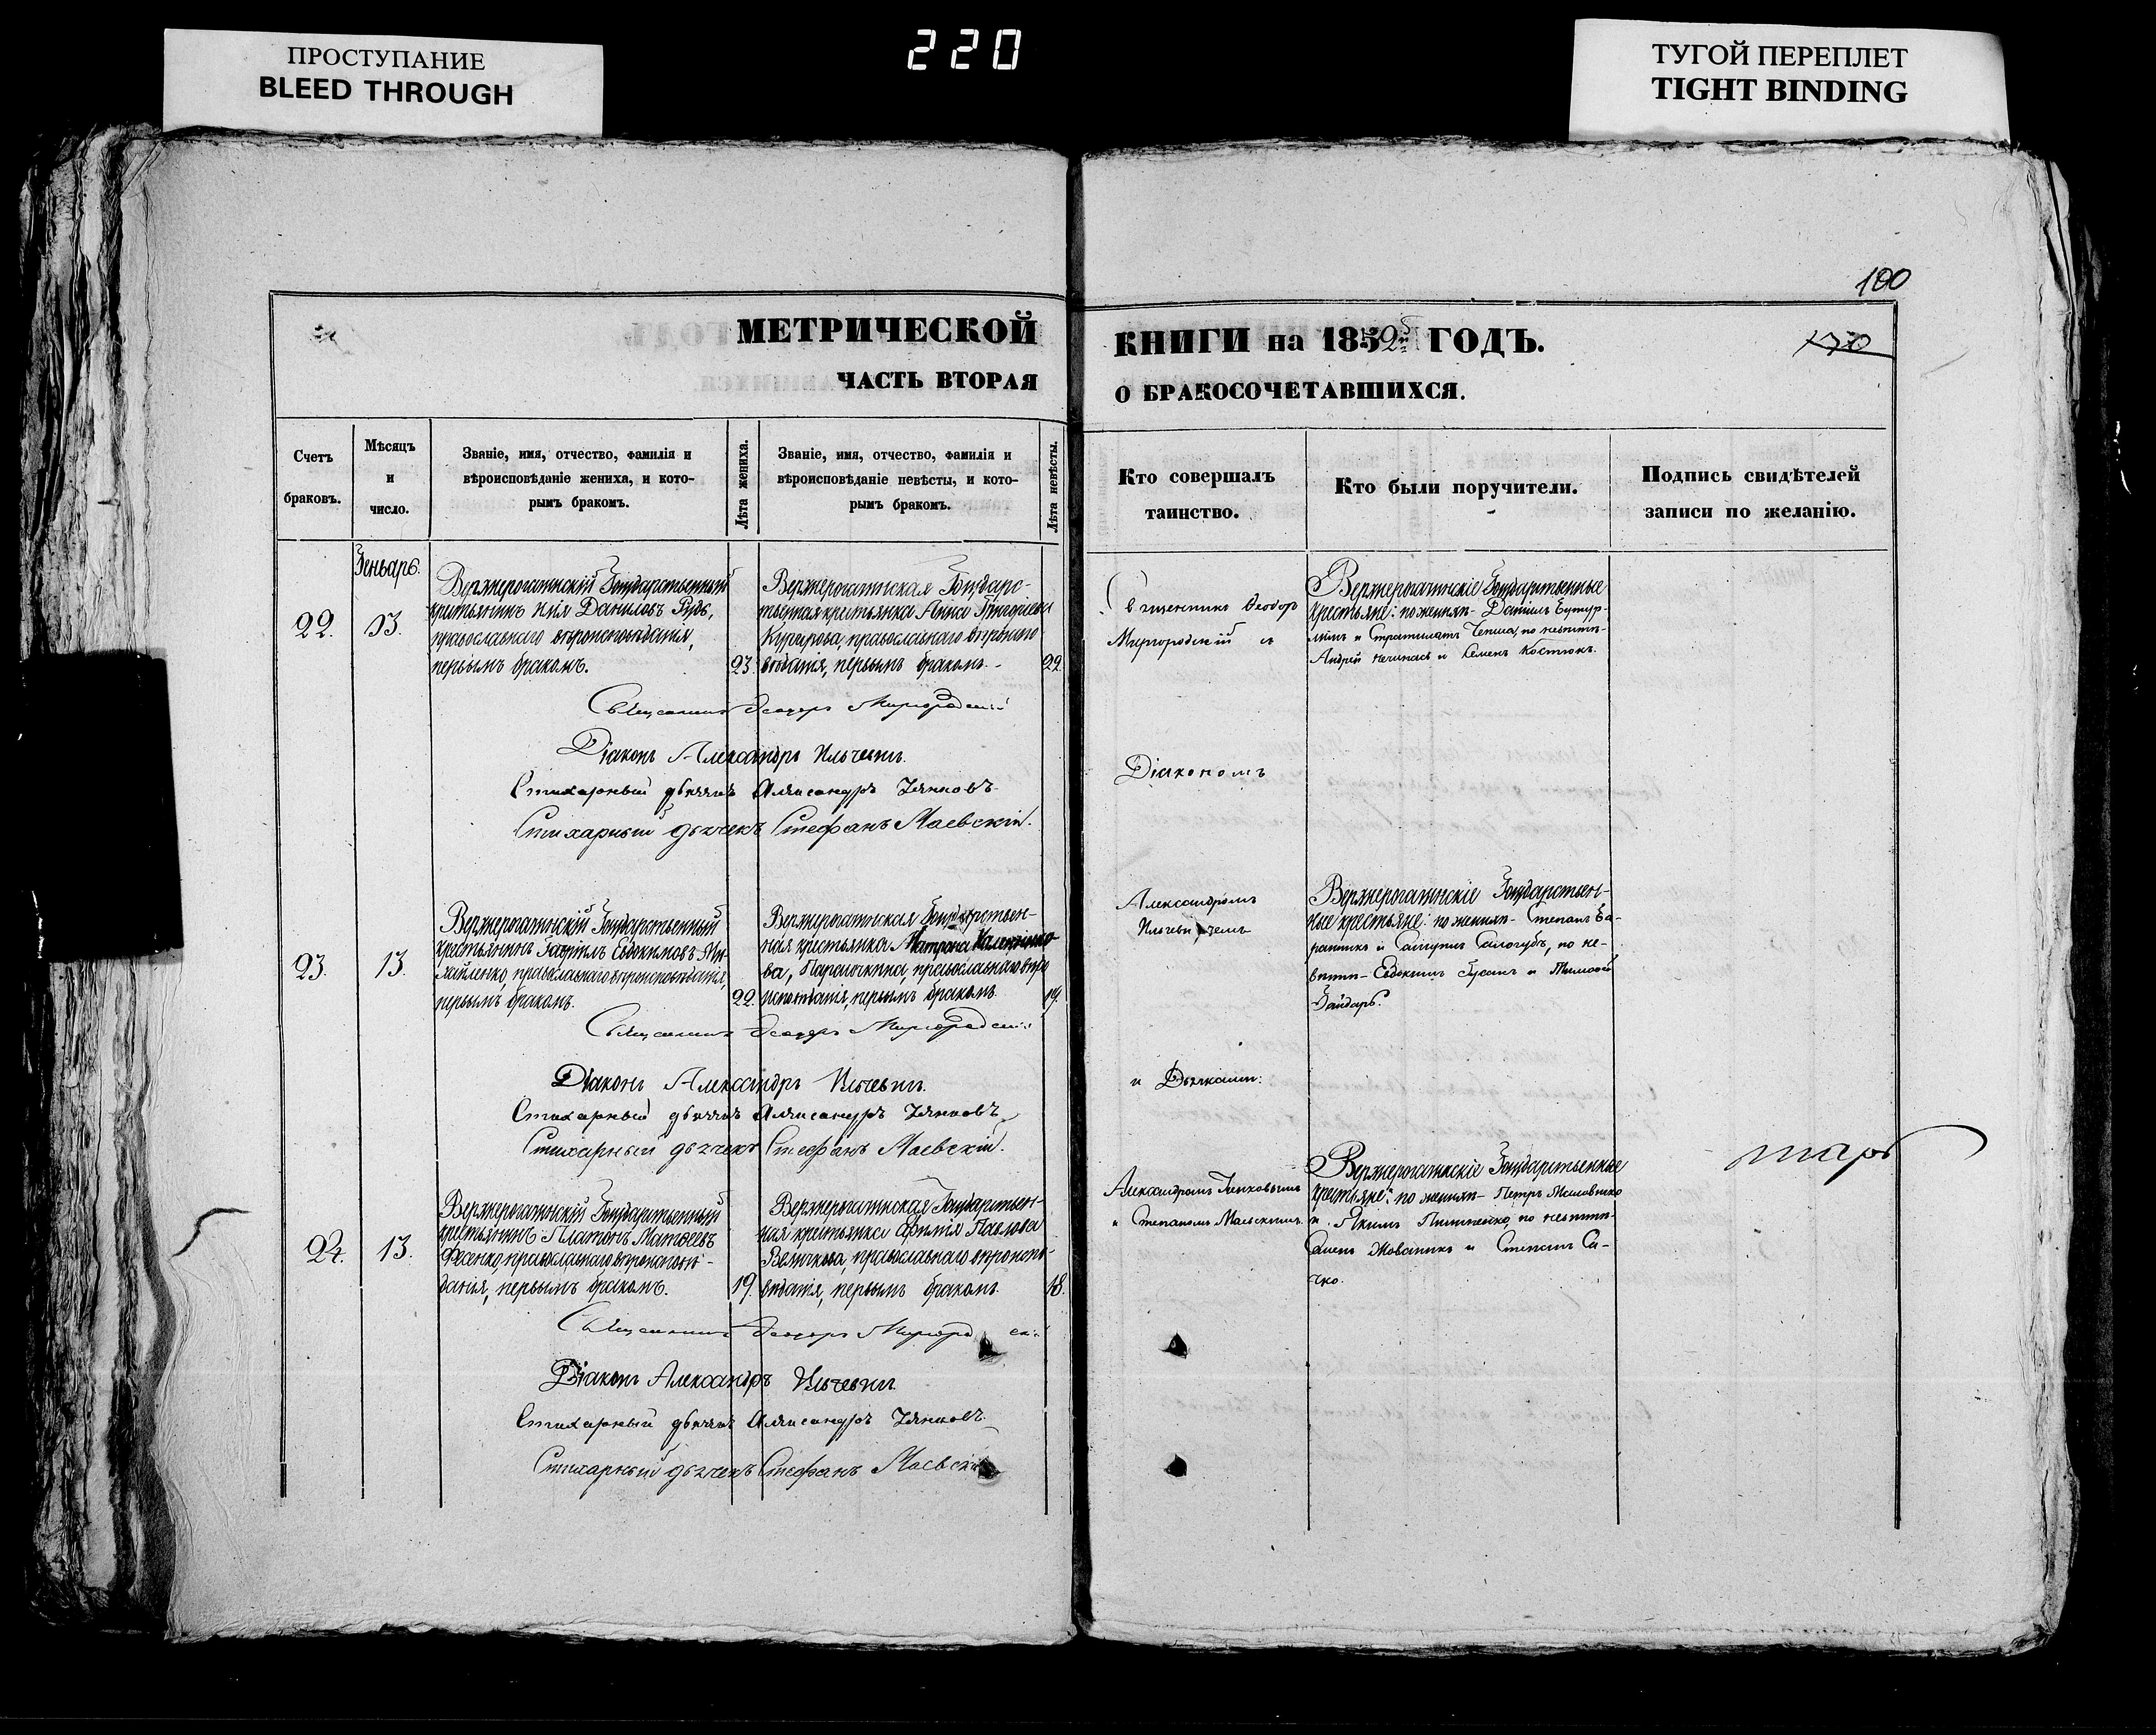 ПРОСТУПАНИЕ
BLEED THROUGH
220
ТУГОЙ ПЕРЕПЛЕТ
TIGHT BINDING
100
МЕТРИЧЕСКОЙ
КНИГИ на 1852й ГОДЪ.
170
ЧАСТЬ ВТОРАЯ
О БРАКОСОЧЕТАВШИХСЯ.
Счетъ
браковъ.
Мѣсяцъ
и
число.
Званіе, имя, отчество, фамилія и
вѣроисповѣданіе жениха, и кото-
рымъ бракомъ.
Лѣта жениха.
Званіе, имя, отчество, фамилія и
вѣроисповѣданіе невѣсты, и кото-
рымъ бракомъ.
Лѣта невѣсты.
Кто совершалъ
таинство.
Кто были поручители.
Подпись свидѣтелей
записи по желанію.
Генварь.
22.
13.
Верхнерогачикскій Государственный
крестьянинъ Илія Даниловъ Рудь,
православнаго вѣроисповѣданія,
первымъ бракомъ.
23.
Верхнерогачикская Государс-
твенная крестьянка Анна
православнаго вѣроиспо
вѣданія, первымъ бракомъ.
22.
Священникъ Ѳеодоръ
Миргородскій съ
Верхнерогачикскіе Государственные
крестьяне: по женихѣ - Даніилъ Бутур-
линъ и Стратилатъ Чепига, по невѣстѣ-
Андрей и Семенъ Костюкъ.
Священникъ Ѳеодоръ Миргородскій
Діаконъ Александръ Ильчевичъ.
Стихарный дьячекъ Александръ
Стихарный дьячекъ Стефанъ Маевскій.
Діакономъ
23.
13.
Верхнерогачикскій Государственный
крестьянинъ Гавріилъ Евдокимовъ Ми-
хайленко, православнаго вѣроисповѣданія,
первымъ бракомъ.
22.
Верхнерогачикская Государствен-
ная крестьянка Матрона
ва, православнаго вѣро
исповѣданія, первымъ бракомъ.
19.
Александромъ
Ильчевичемъ
Верхнерогачикскіе Государствен-
ные крестьяне: по женихѣ - Степанъ Ба-
и по не-
вѣстѣ - Евдокимъ и Тимоѳей
Гайдарь.
Священникъ Ѳеодоръ Миргородскій
Діаконъ Александръ Ильчевичъ.
Стихарный дьячекъ Александръ
Стихарный дьячекъ Стефанъ Маевскій.
и Дьячками:
24.
13.
Верхнерогачикскій Государственный
крестьянинъ Платонъ Матѳеевъ
Фесенко, православнаго вѣроисповѣ-
данія, первымъ бракомъ.
19.
Верхнерогачикская Государствен-
ная крестьянка Павлова
Величкова, православнаго вѣроиспо-
вѣданія, первымъ бракомъ.
18.
Александромъ
и Степаномъ Маевскимъ.
Верхнерогачикскіе Государственные
крестьяне: по женихѣ - Петръ
и Якимъ по невѣстѣ-
и Степанъ Са-
чко.
Священникъ Ѳеодоръ
Діаконъ Александръ Ильчевичъ
Стихарный дьячекъ Александръ
Стихарный дьячекъ Стефанъ Маевскій